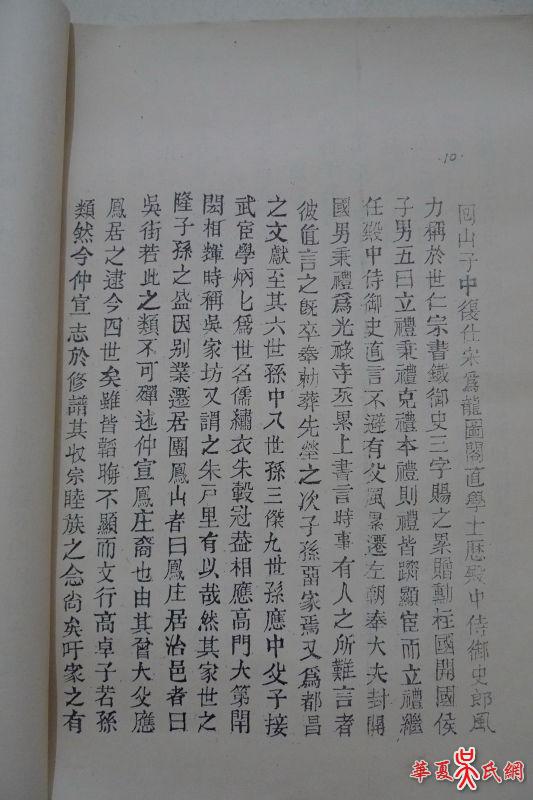 ·10·
回山子中復仕宋為龍圖閣直學士歷殿中侍御史郎風
力稱於世仁宗書鐵御史三字賜之累贈勳柱國開國侯
子男五曰立禮秉禮克禮本禮則禮皆躋顯宦而立禮繼
任殿中侍御史直言不避有父風累遷左朝奉大夫封開
國男秉禮為光祿寺丞累上書言時事有人之所難言者
彼值言之旣卒奉勅葬先塋之次子孫因家焉又為都昌
之文獻至其六世孫中八世孫三傑九世孫應中父子接
武宦學炳匕為世名儒繡衣朱轂冠葢相應高門大第閈
閎相輝時稱吳家坊又謂之朱戸里有以哉然其家世之
隆子孫之盛因别業遷居團鳳山者曰鳳庄居治邑者曰
吳街若此之類不可殫述仲宣鳳庄裔也由其曾大父應
鳳居之逮今四世矣雖皆韜晦不顯而文行高卓子若孫
類然今仲宣志於修譜其收宗睦族之念尚矣吁家之有
華夏吳氏網